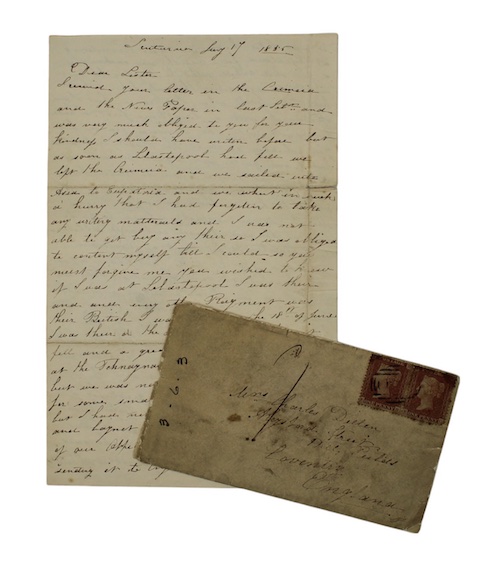 July 17 1885
Dear Sister
I received your letter in the Crimea
and the News Paper in last Febr and
was very much obliged to you for your
kindness I should have writen before but
as soon as Sebastopool had fell we
left the Crimea and we sailed
Asia to and we went in such
a hurry that I had forgotin to take
any writing matterials and I was not
able to get buy any their so I was obliged
to content myself till I could so you
must forgive me you wished to know
if I was at Sebastopool I was their
and any other Rigment was
their British I was the 18th of June
I was their at the
fell and a grea
at the Tchnayna
but we was no
for some sma
but I had no
and bagnet
of our othe
sending it to
3 . 6 . 3
1
Mrs Charles Dullen
Street
Coventry
England